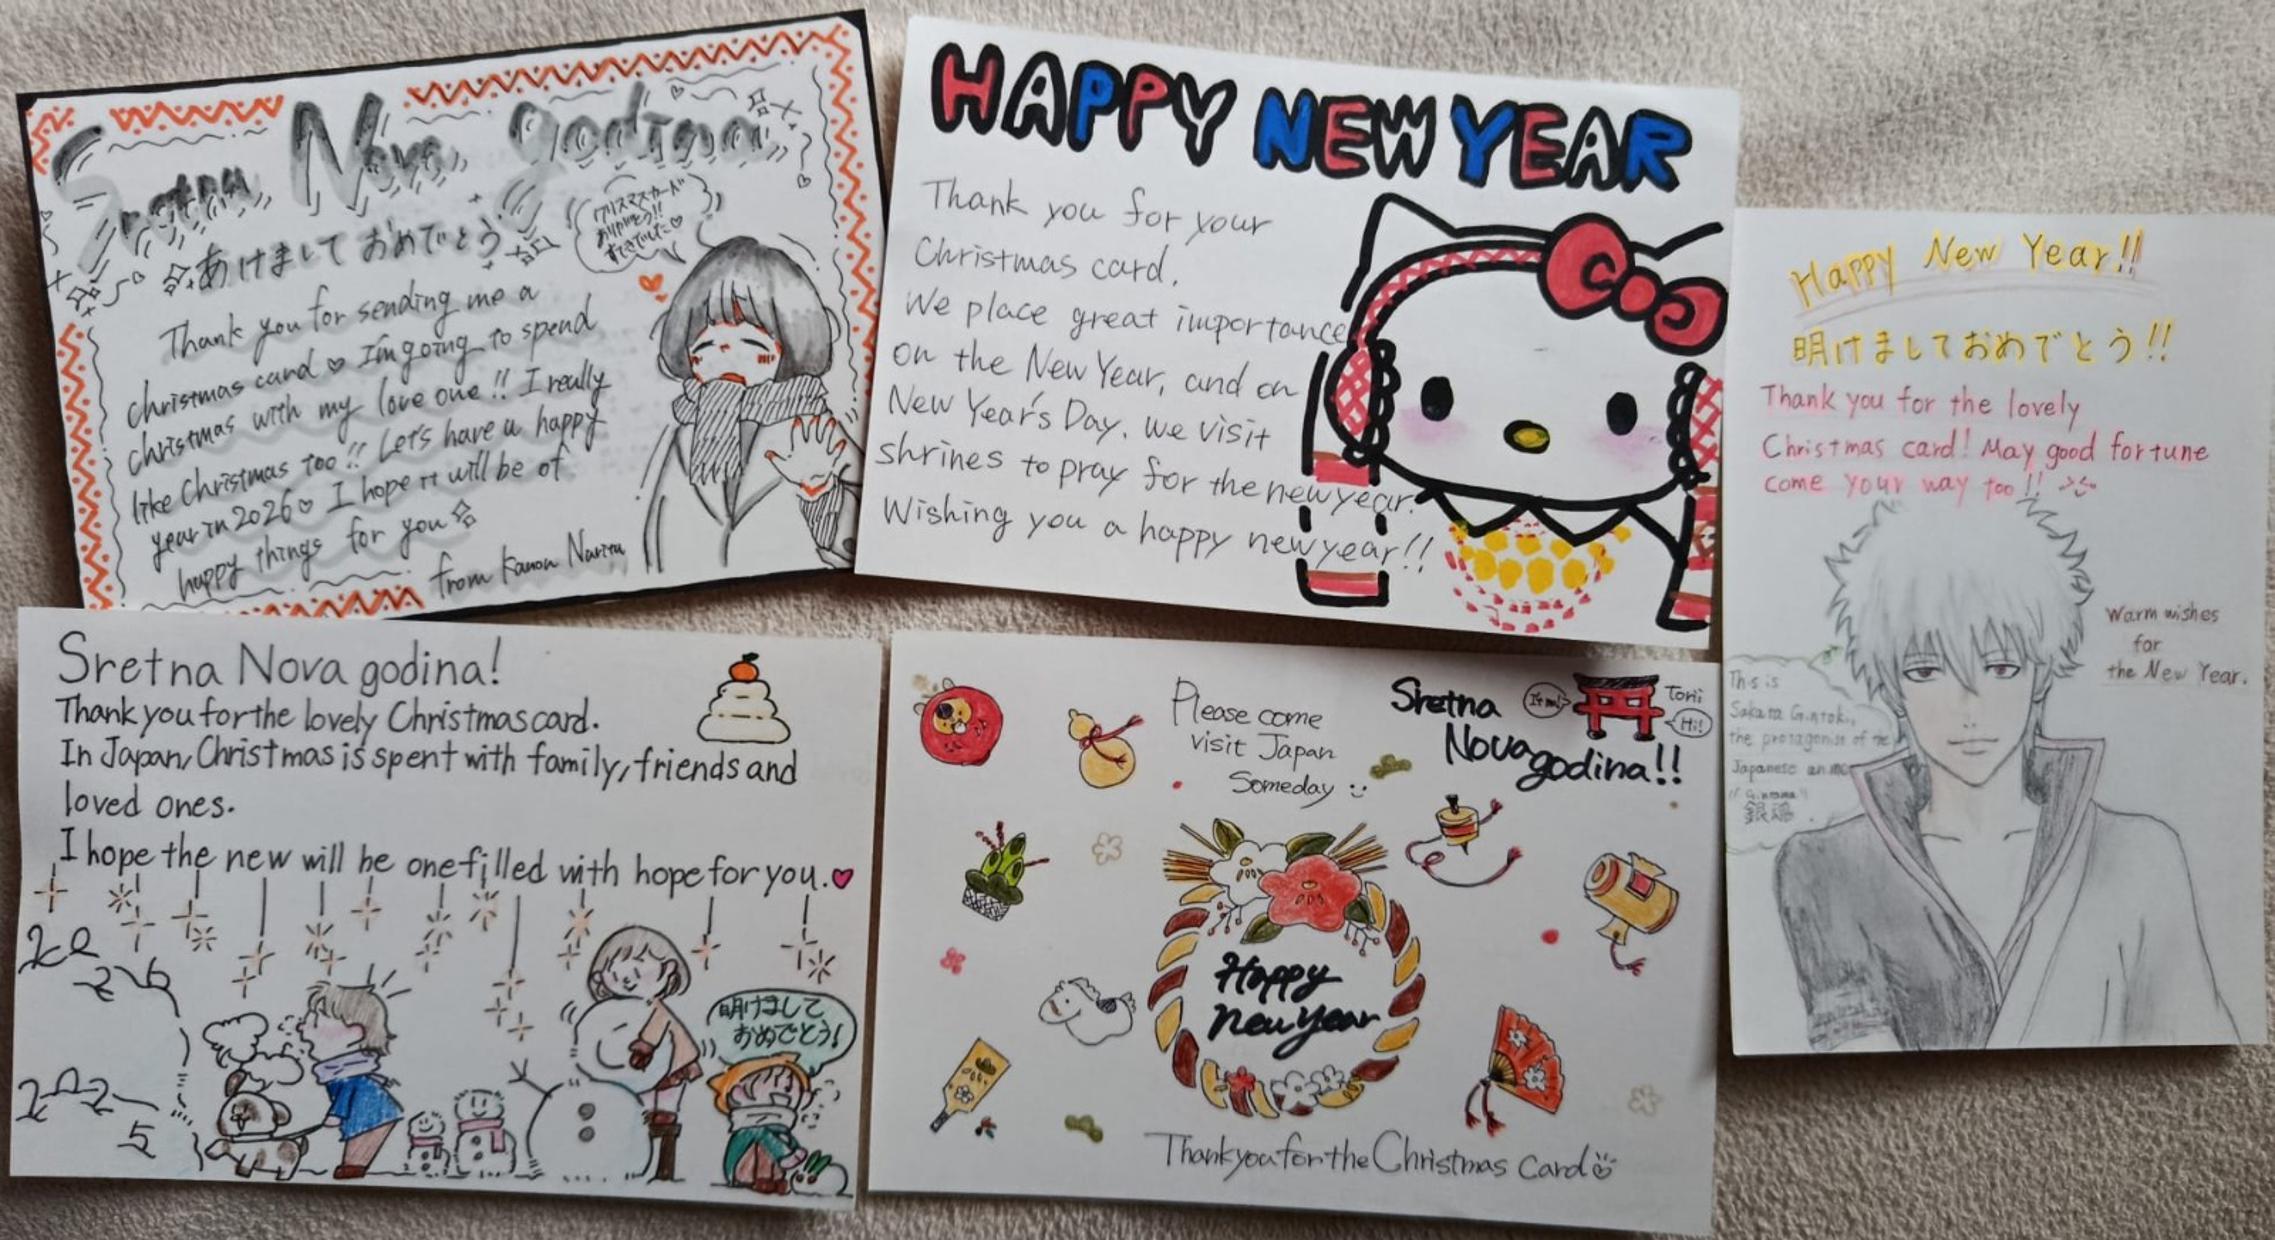 Sretna Nova godina
あけまして おめでとう
クリスマスカード
ありがとう!!
すてきでした♡
Thank you for sending me a
christmas card ♡ I'm going to spend
christmas with my love one!! I really
like Christmas too!! Let's have a happy
year in 2026♡ I hope it will be of
happy things for you
from Kanon Narita
HAPPY NEW YEAR
Thank you for your
Christmas card.
We place great importance
on the New Year, and on
New Year's Day, we visit
shrines to pray for the new year.
Wishing you a happy new year!!
Happy New Year!!
明けましておめでとう!!
Thank you for the lovely
Christmas card! May good fortune
come your way too!!
Warm wishes
for
the New Year.
This is
Sakata Gintoki,
the protagonist of the
Japanese anime
"Gintama"
銀魂.
Sretna Nova godina!
Thank you for the lovely Christmas card.
In Japan, Christmas is spent with family, friends and
loved ones.
I hope the new will be one filled with hope for you.♥
2026
2025
明けまして
おめでとう!
Please come
visit Japan
Someday
Sretna
Nova godina!!
Torii
Hi!
Happy
New Year
Thank you for the Christmas card